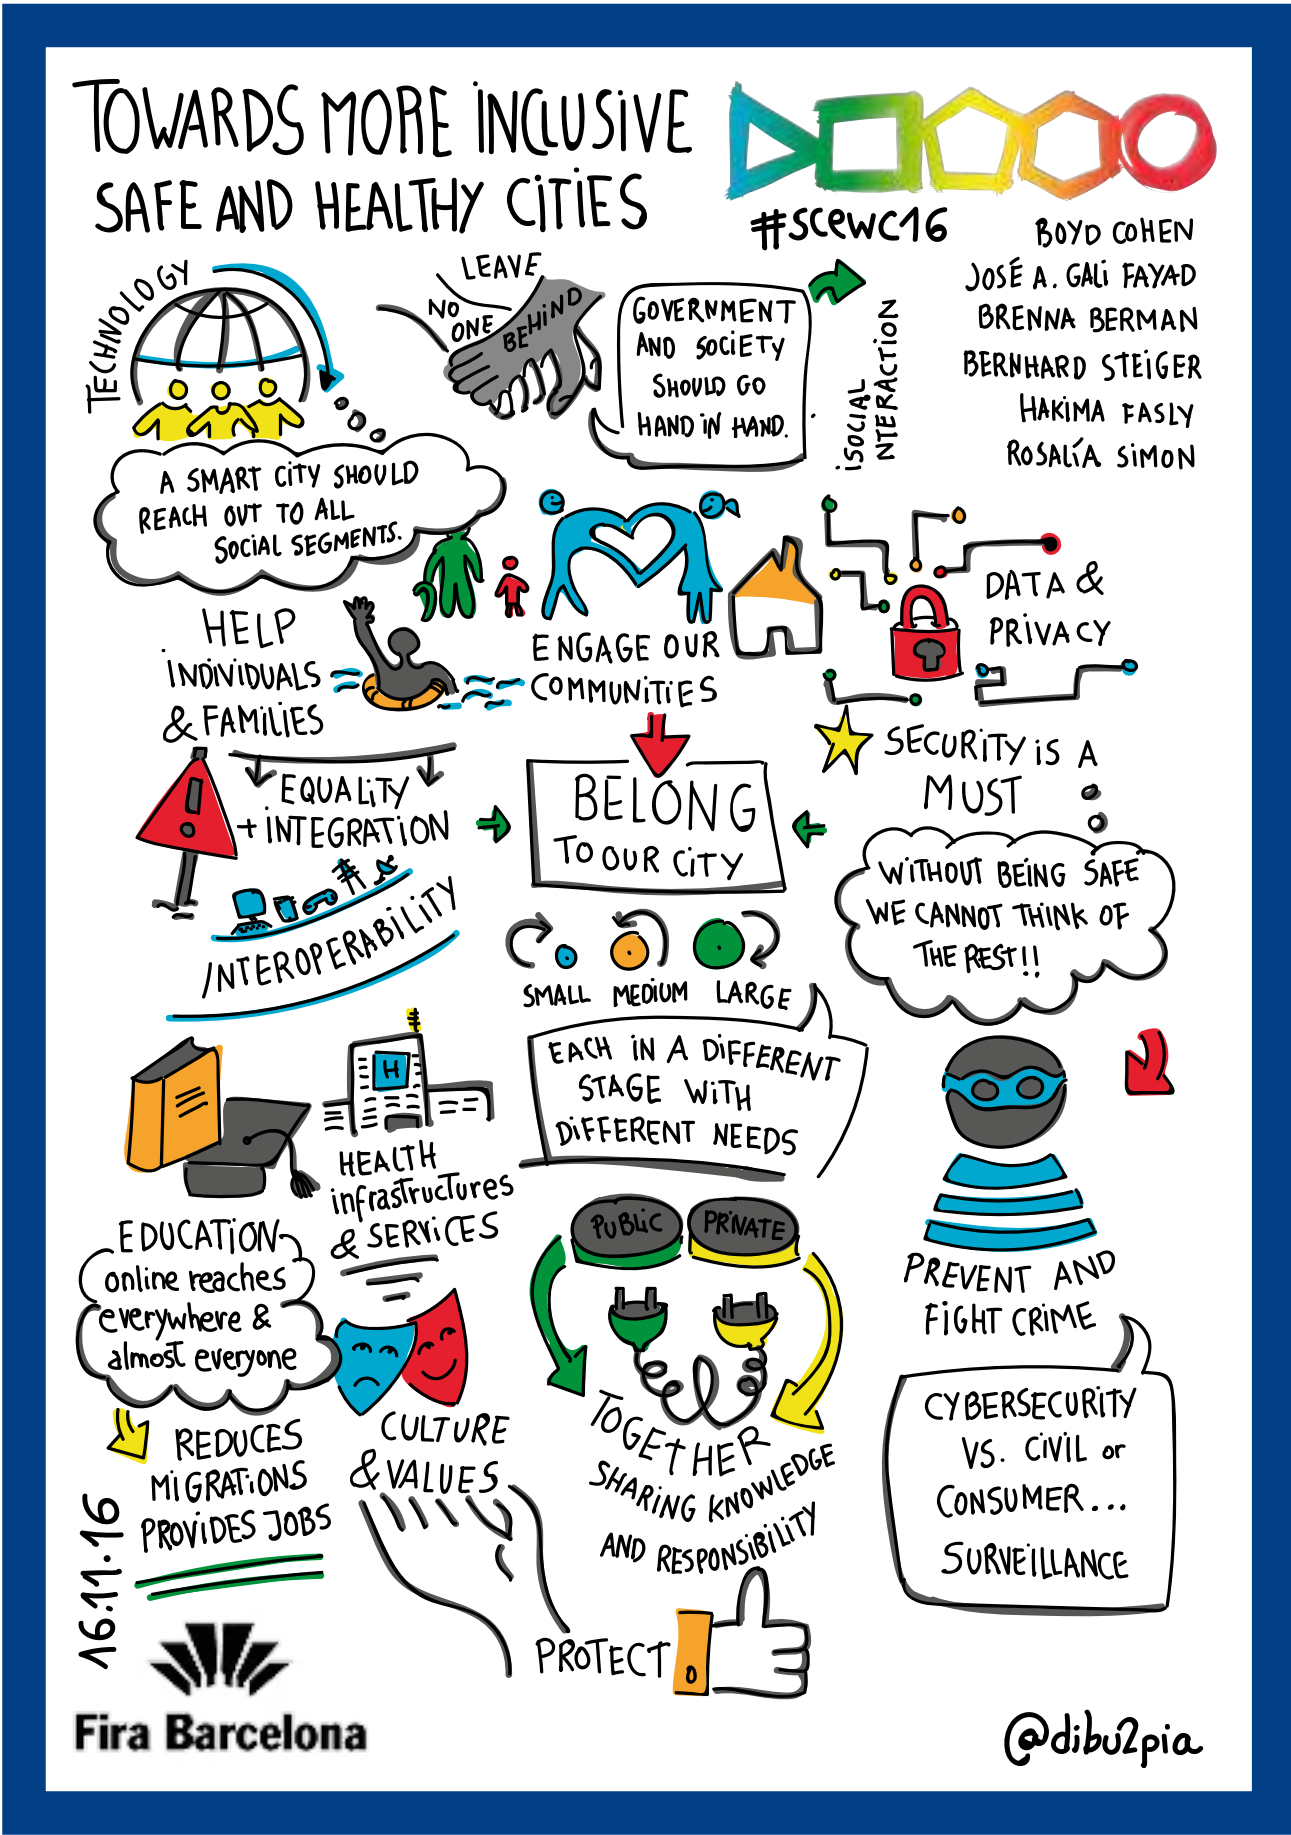 TOWARDS MORE INCLUSIVE
SAFE AND HEALTHY CITIES
#scewc16
BOYD COHEN
JOSÉ A. GALI FAYAD
BRENNA BERMAN
BERNHARD STEIGER
HAKIMA FASLY
ROSALÍA SIMON
TECHNOLOGY
LEAVE
NO
ONE
BEHIND
GOVERNMENT
AND SOCIETY
SHOULD GO
HAND IN HAND.
iSOCIAL
NTERACTION
A SMART CITY SHOULD
REACH OUT TO ALL
SOCIAL SEGMENTS.
HELP
INDIVIDUALS
& FAMILIES
ENGAGE OUR
COMMUNITIES
DATA &
PRIVACY
SECURITY IS A
MUST
EQUALITY
+ INTEGRATION
BELONG
TO OUR CITY
WITHOUT BEING SAFE
WE CANNOT THINK OF
THE REST!!
INTEROPERABILITY
SMALL MEDIUM LARGE
EACH IN A DIFFERENT
STAGE WITH
DIFFERENT NEEDS
H
HEALTH
infrastructures
& SERVICES
EDUCATION
online reaches
everywhere &
almost everyone
PUBLIC PRIVATE
PREVENT AND
FIGHT CRIME
REDUCES
MIGRATIONS
PROVIDES JOBS
CULTURE
& VALUES
TOGETHER
SHARING KNOWLEDGE
AND RESPONSIBILITY
CYBERSECURITY
VS. CIVIL or
CONSUMER...
SURVEILLANCE
16.11.16
PROTECT
Fira Barcelona
@dibu2pia